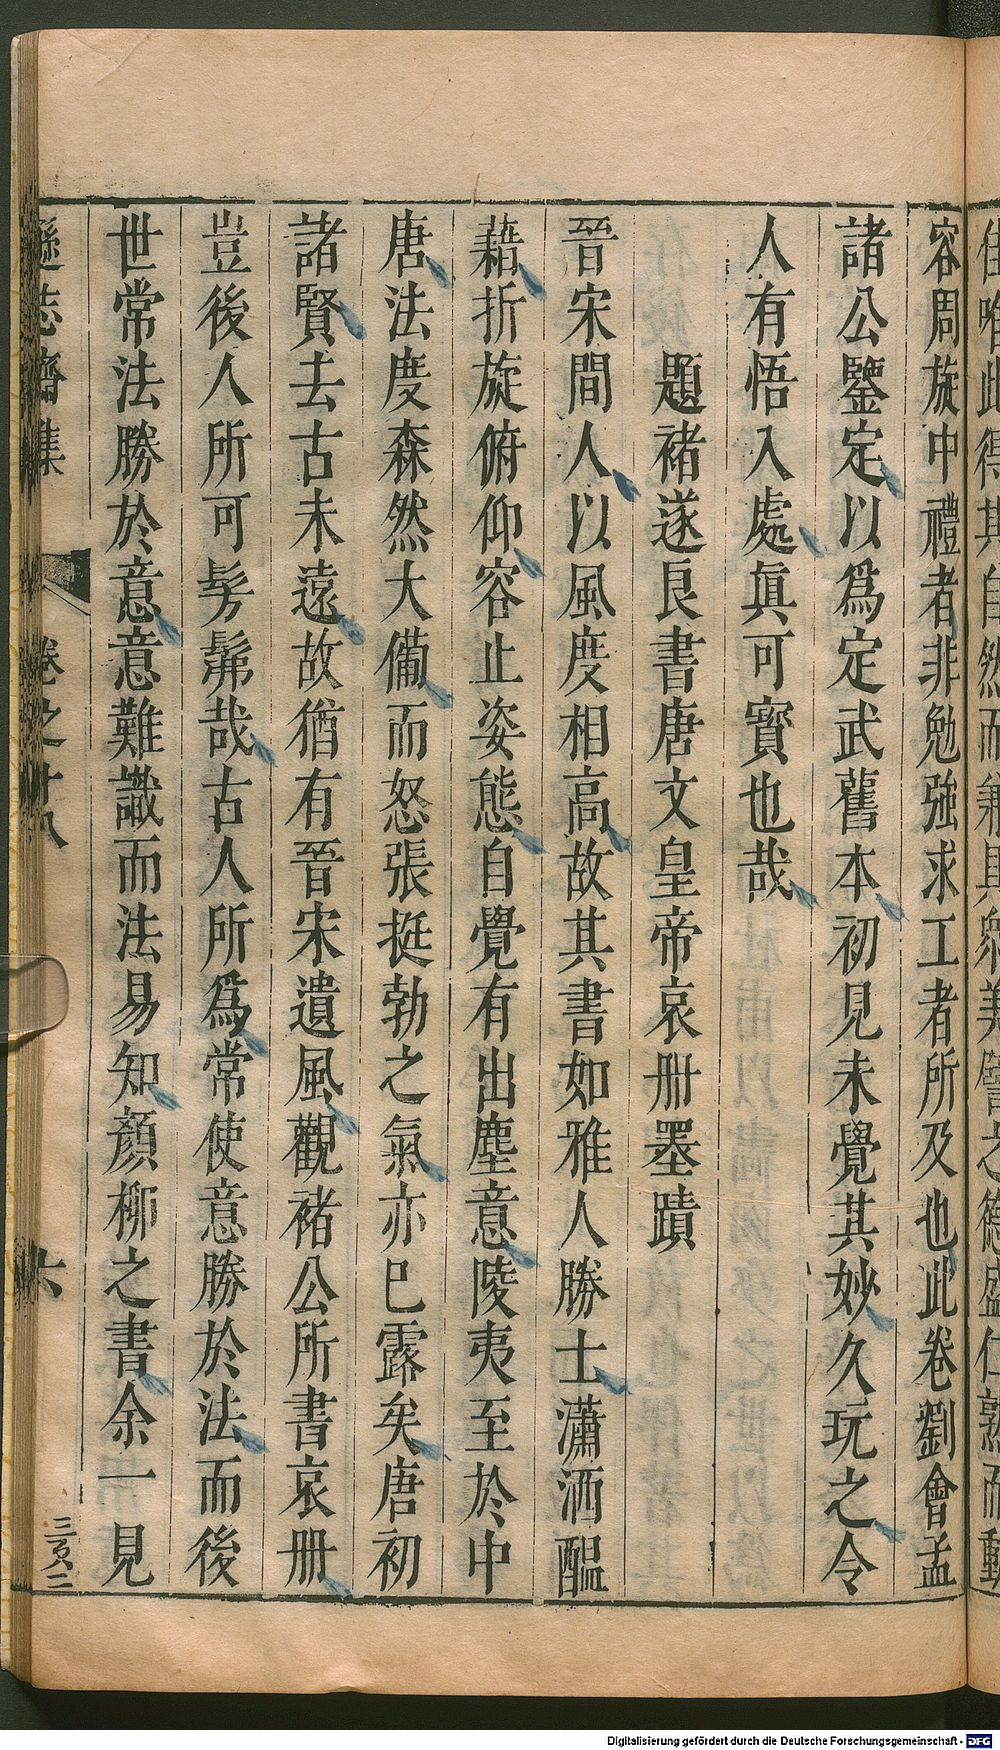 佳唯此得其自然而兼具衆美譬之德盛仁熟而動
容周旋中禮者非勉強求工者所及也此卷劉會孟
諸公鑒定以爲定武舊本初見未覺其妙久玩之令
人有悟入處眞可寳也哉
題褚遂良書唐文皇帝哀冊墨蹟
晉宋間人以風度相高故其書如雅人勝士瀟洒醖
藉折旋俯仰容止姿態自覺有出塵意陵夷至於中
唐法度森然大備而怒張挺勃之氣亦巳露矣唐初
諸賢去古未遠故猶有晉宋遺風觀褚公所書哀冊
豈後人所可髣髴哉古人所爲常使意勝於法而後
世常法勝於意意難識而法易知顏柳之書余一見
遜志齋集 卷之十八 六 三百八二
Digitalisierung gefördert durch die Deutsche Forschungsgemeinschaft - DFG